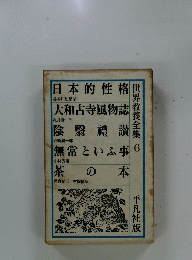 世界教養全集 6
平凡社版
日本的性格
大和古寺風物誌
陰翳禮讃
無常といふ事
茶の本